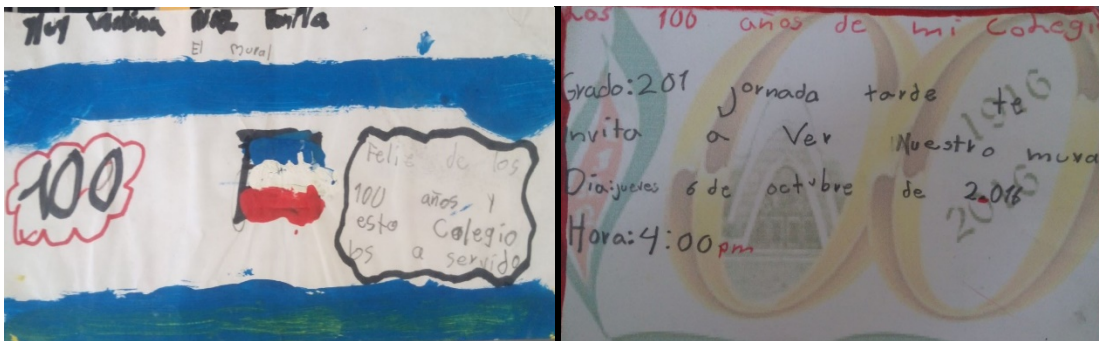 El Mural
100
Feliz de los
100 años y
esto Colegio
los a servido
Los 100 años de mi Colegi
Grado: 201 jornada tarde te
Invita a Ver Nuestro mura
Dia: jueves 6 de octubre de 2.016
Hora: 4:00 pm
1916
2016